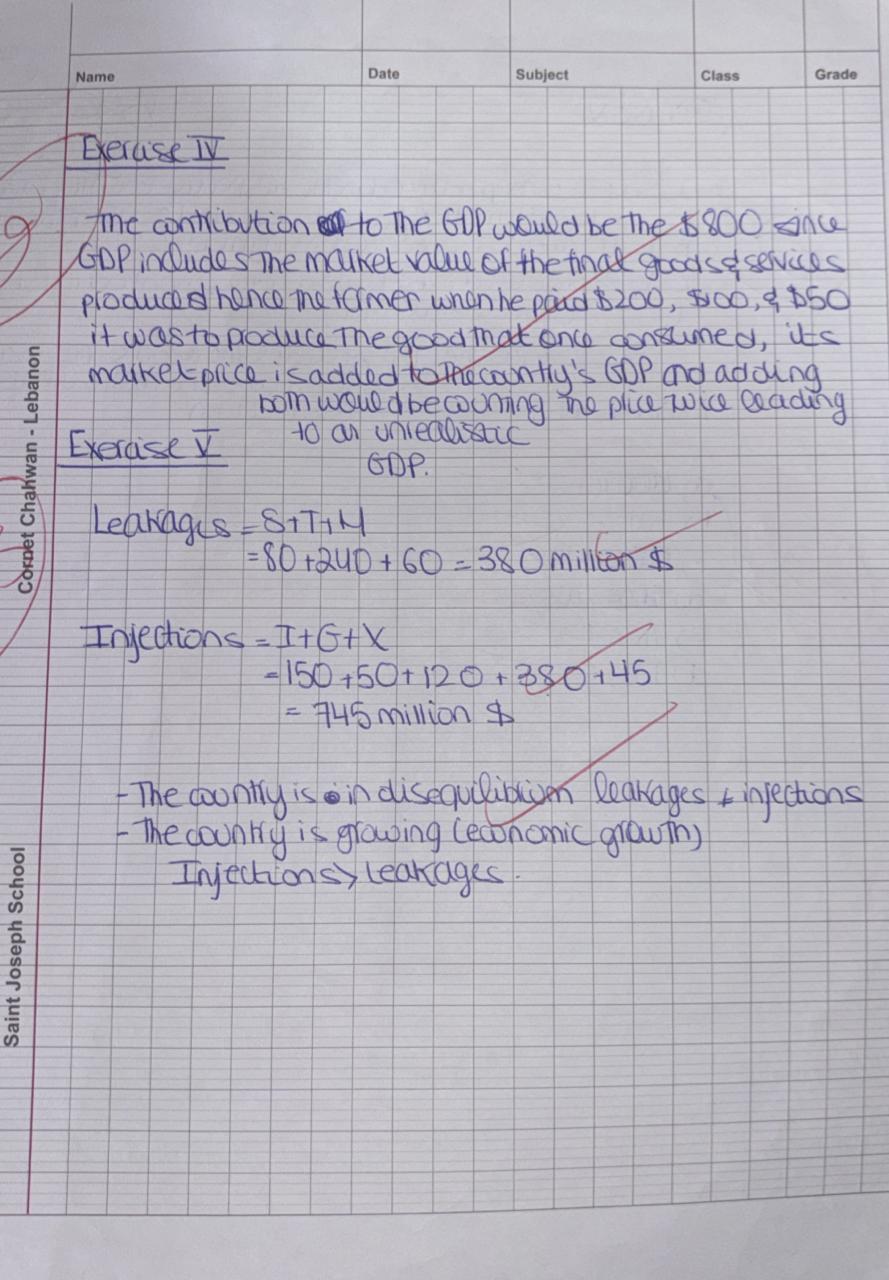 Name Date Subject Class Grade
Exercise IV
The contribution to the GDP would be the $800 since
GDP includes the market value of the final goods & services
produced hence the farmer when he paid $200, $100, & $50
it was to produce the good that once consumed, its
market price is added to the country's GDP and adding
both would be counting the price twice leading
to an unrealistic
GDP.
Exercise V
Leakages = S+T+M
=80+240+60=380 million $
Injections = I+G+X
=150+50+120+380+45
= 745 million $
- The country is in disequilibrium leakages ≠ injections
- The country is growing (economic growth)
Injections > leakages.
Cornet Chahwan - Lebanon
Saint Joseph School